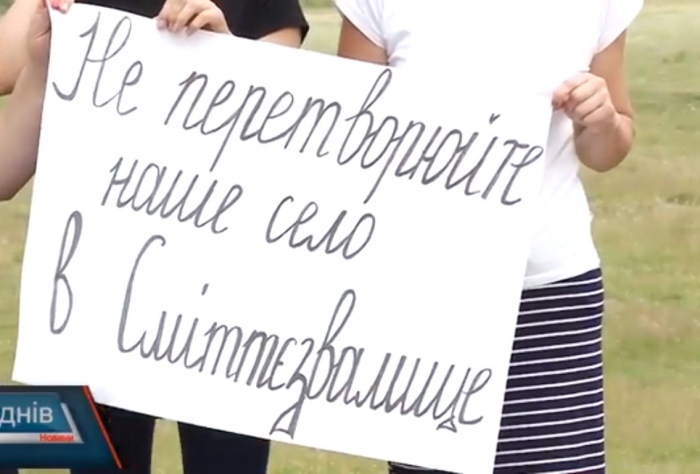 Не перетворюйте
наше село
в Сміттєзвалище
днів
Новини